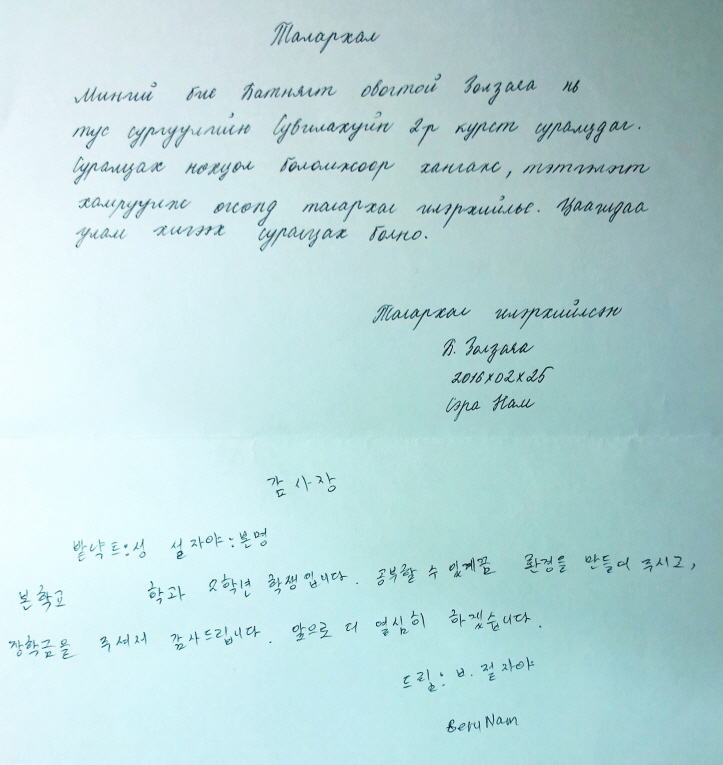 Талархал
Миний бие Батнягт овогтой Золзаяа нь
тус сургуулийн Сувилахуйн 2-р курст суралцдаг.
Суралцах нөхцөл боломжоор хангаж, тэтгэлэгт
хамруулж өгсөнд талархал илэрхийлье. Цаашдаа
улам хичээж суралцах болно.
Талархал илэрхийлсэн
Б. Золзаяа
2016x02x25
Сэра Нам
감사장
밭냑트:성 설자야:본명
본학교 학과 2학년 학생입니다. 공부할 수 있게끔 환경을 만들어 주시고,
장학금을 주셔서 감사드립니다. 앞으로 더 열심히 하겠습니다.
드림: ㅂ. 젙자야
Seru Nam